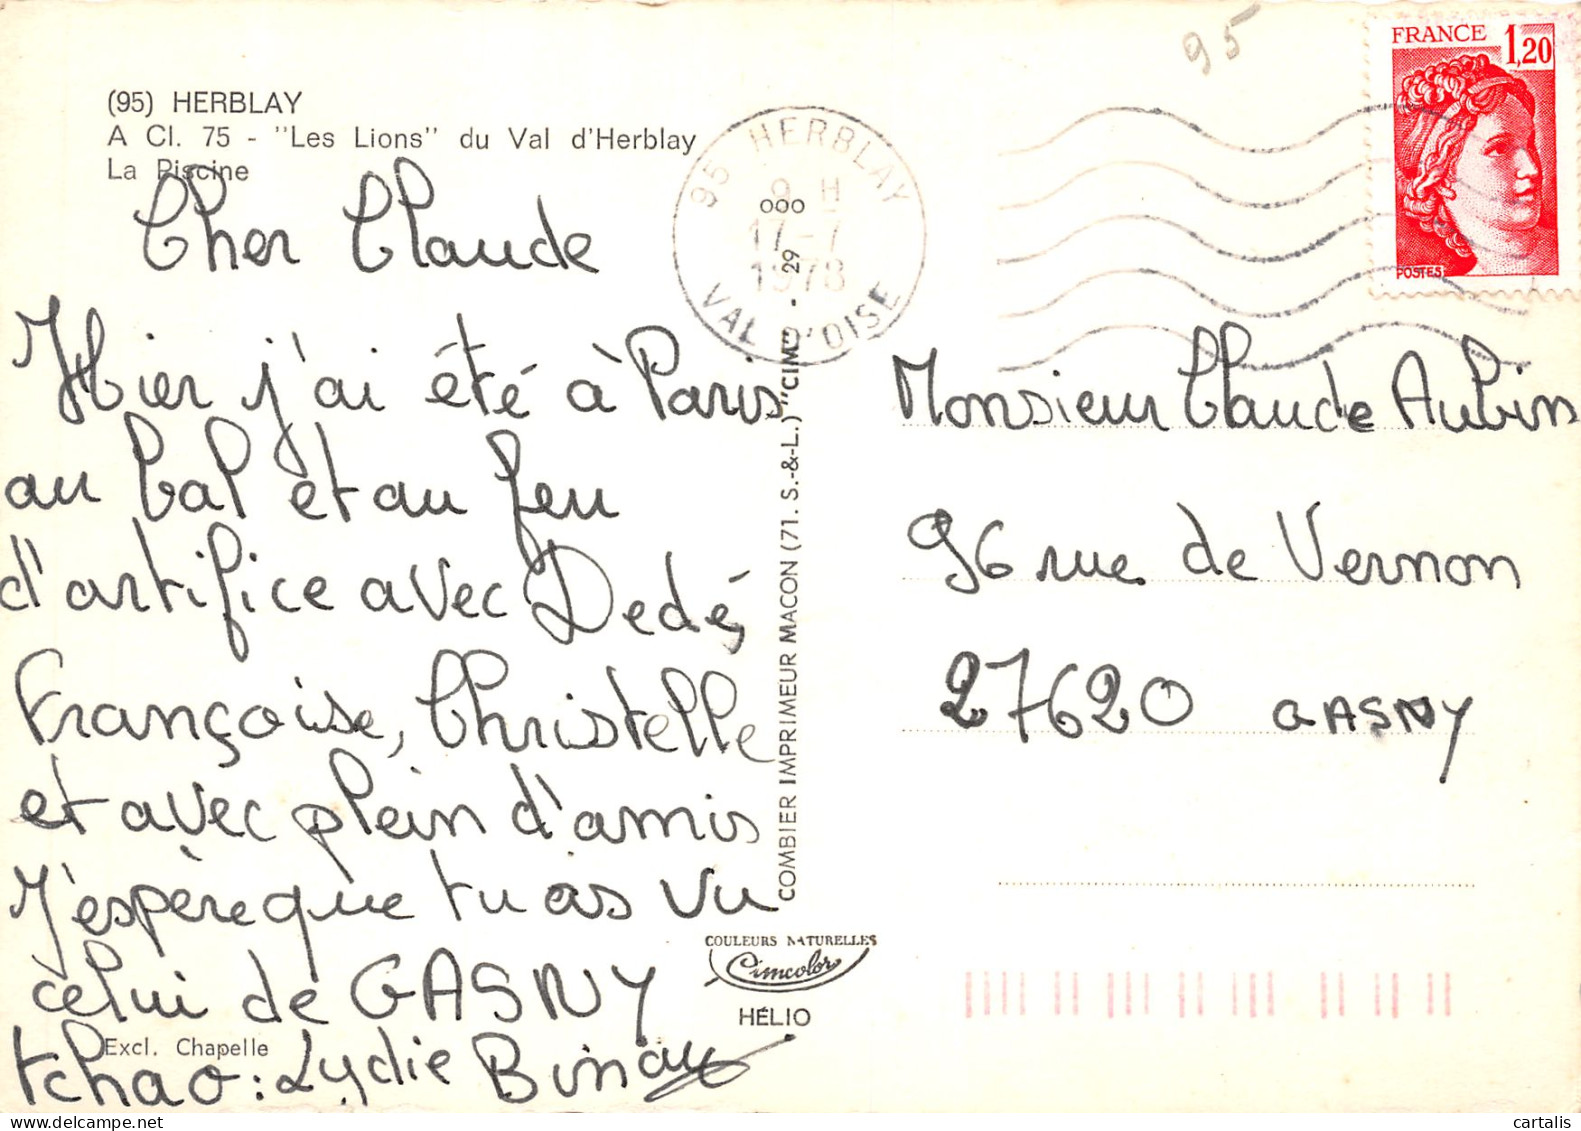 (95) HERBLAY
A Cl. 75 - "Les Lions" du Val d'Herblay
La Piscine
Cher Claude
Hier j'ai été à Paris
au bal et au feu
d'artifice avec Dedé,
Françoise, Christelle
et avec plein d'amis
J'espère que tu as vu
celui de GASNY
Excl. Chapelle
tchao : Lydie
95 HERBLAY
9 H
17 - 7
1978
VAL D'OISE
ooo
COMBIER IMPRIMEUR MACON (71. S.-&-L.) "CIM" - 29
COULEURS NATURELLES
Cimcolor
HÉLIO
95
FRANCE 1,20
POSTES
Monsieur Claude Aubin
96 rue de Vernon
27620 GASNY
cartalis